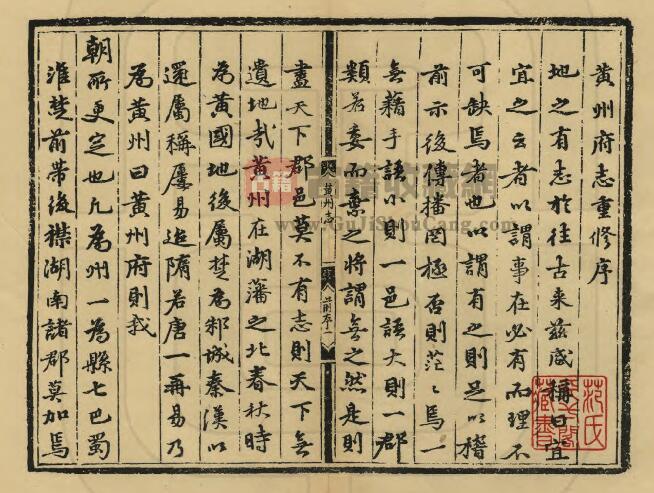 黄州府志重修序
地之有志於徃古来兹咸稱曰宜
宜之云者以謂事在必有而理不
可缺焉者也以謂有之則足以稽
前示後傳播罔極否則茫〻焉一
無藉手語小則一邑語大則一郡
類若委而棄之將謂無之然是則
黄州志
前序一
盡天下郡邑莫不有志則天下無
遺地㢤黄州在湖藩之北春秋時
為黄國地後屬楚為邾城秦漢以
還屬稱屢易迨隋若唐一再易乃
為黄州曰黄州府則我
朝所更定也凡為州一為縣七巴蜀
淮楚前帶後襟湖南諸郡莫加焉
范氏天一閣藏書
古籍收藏網
www.GuJiShouCang.com